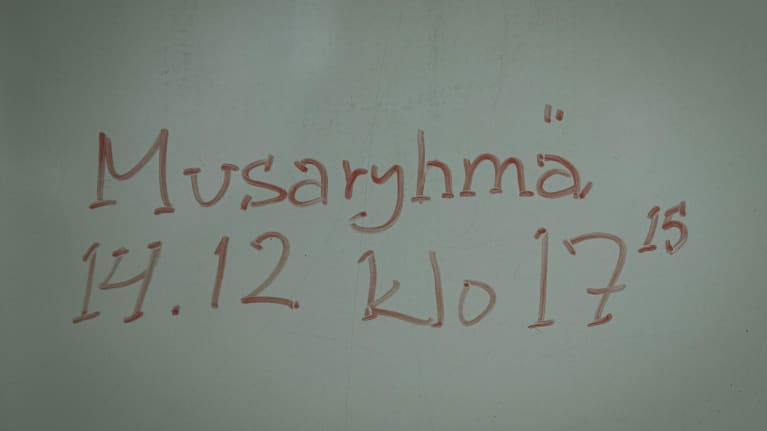 Musaryhmä
14.12 klo 17¹⁵